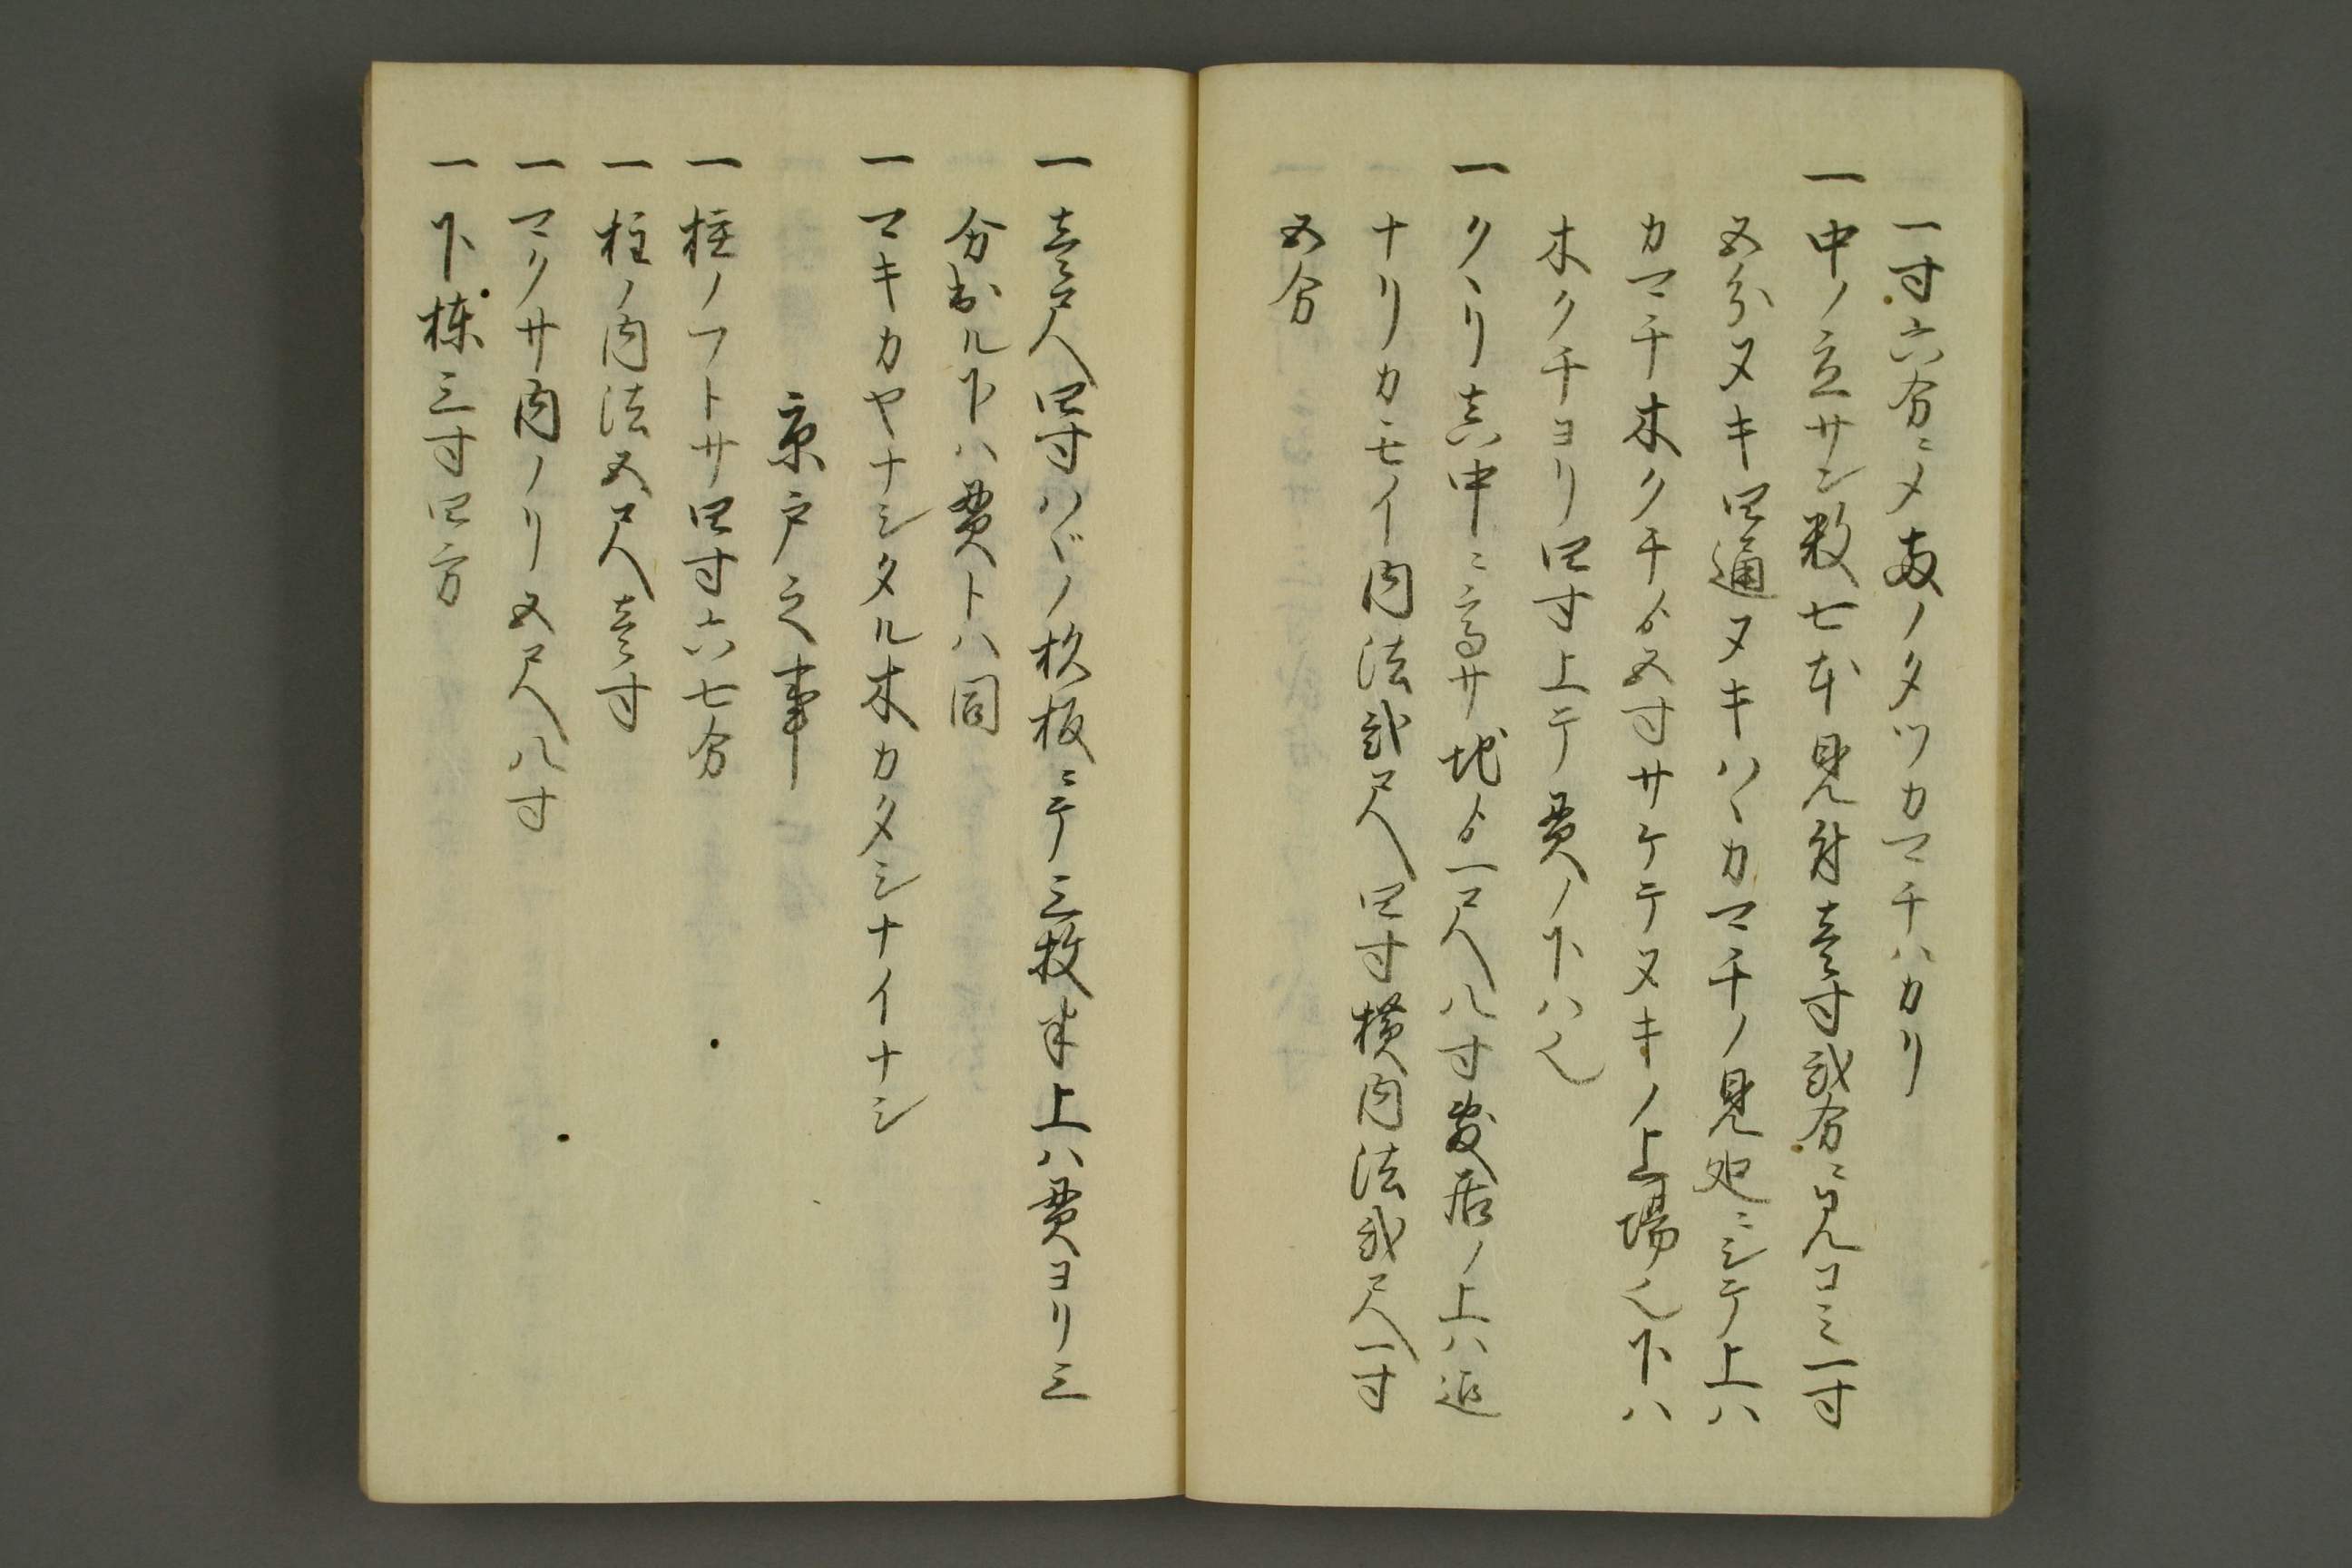 一寸六分ニメ両ノタツカマチハカリ
一中ノ立サン数七本見付壱寸弐分ニ見コミ一寸
五分ヌキ四通ヌキハヽカマチノ見処ニシテ上ハ
カマチ木クチゟ五寸サケテヌキノ上場也下ハ
木クチヨリ四寸上テ貫ノ下ハ也
一クヽリ真中ニ高サ地ゟ一尺八寸敷居ノ上ハ迠
ナリカモイ内法弐尺四寸横内法弐尺一寸
五分
一壱尺四寸ハヾノ杉板ニテ三枚半上ハ貫ヨリ三
分出ル下ハ貫トハ同
一マキカヤナシタル木カタシナイナシ
京戸之事
一柱ノフトサ四寸六七分
一柱ノ内法五尺壱寸
一マクサ内ノリ五尺八寸
一下棟三寸四方